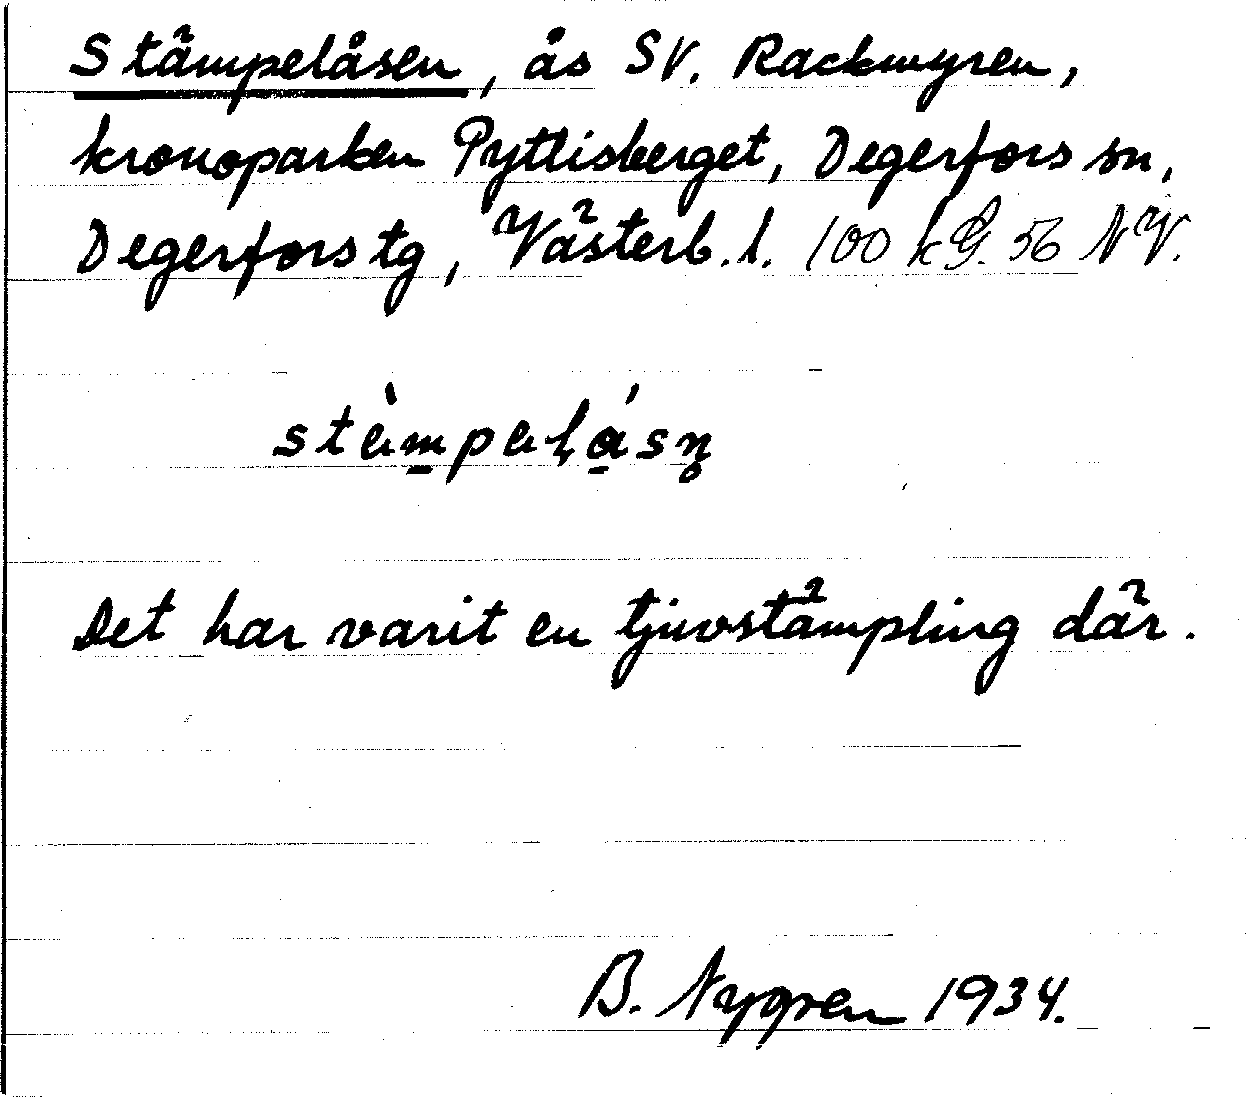 Stämpelåsen, ås SV. Rackmyren,
kronoparken Pyttisberget, Degerfors sn,
Degerfors tg, Västerb. l. 100 kG. 56 NV.
stèmpelåsn̥
Det har varit en tjuvstämpling där.
B. Nygren 1934.